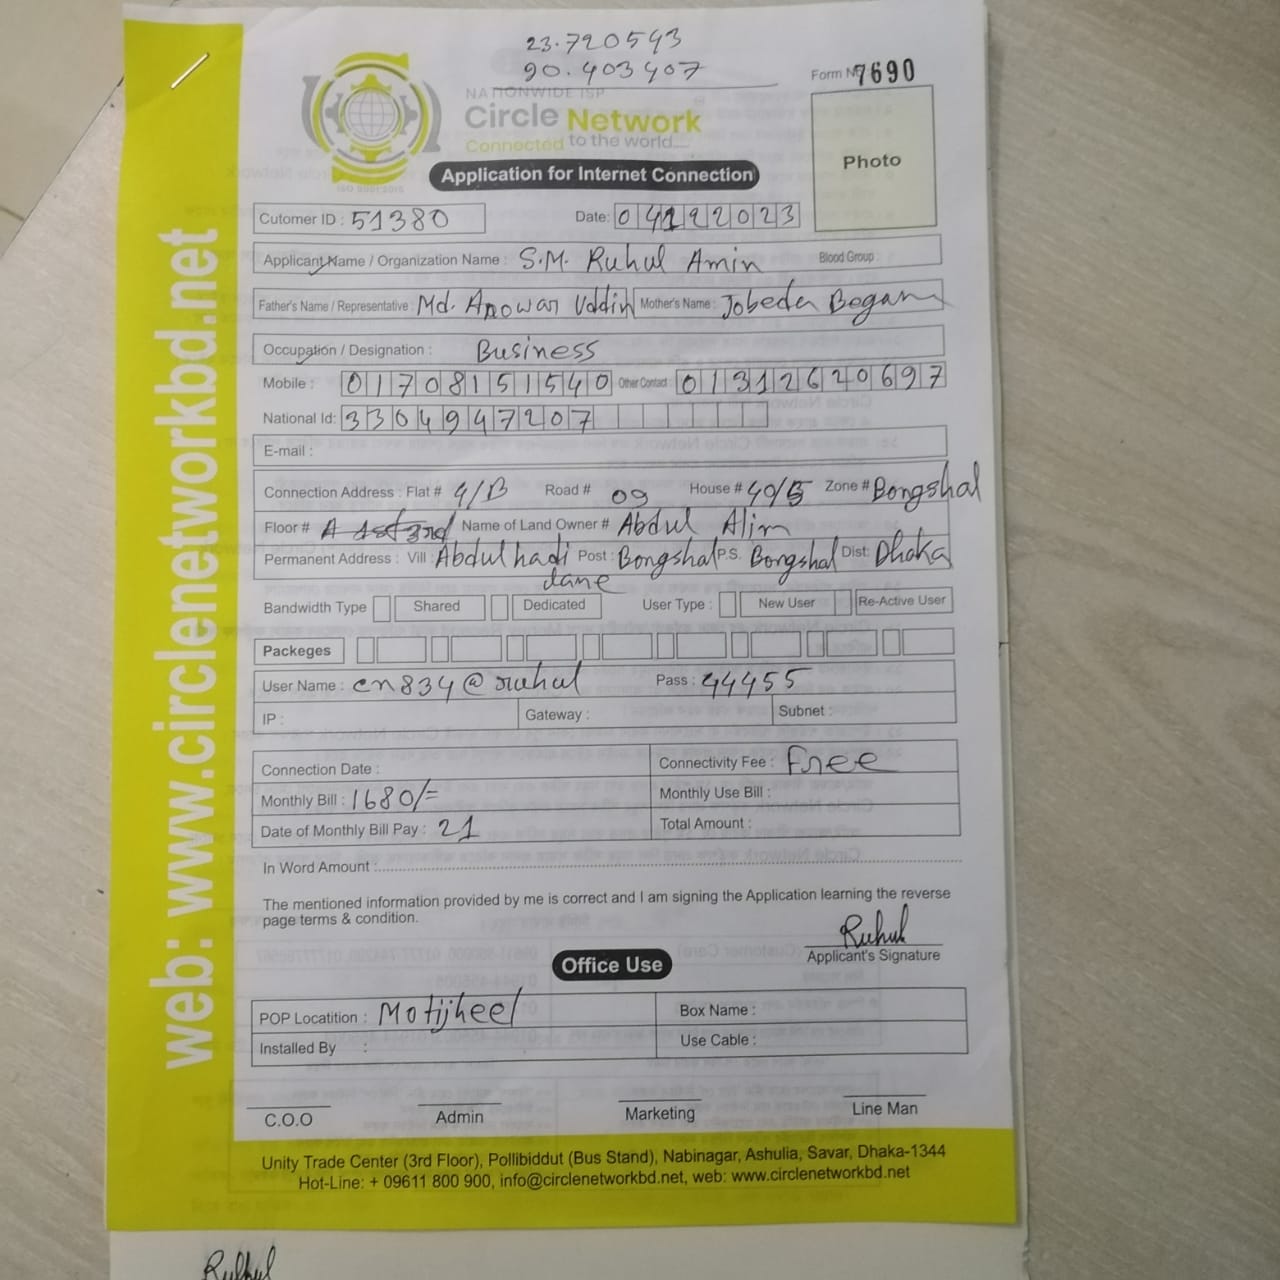 23.720543
90.403407
Form № 7690
NATIONWIDE ISP
Circle Network
Connected to the world....
ISO 9001:2015
Application for Internet Connection
Photo
Cutomer ID : 51380 Date: 04122023
Applicant Name / Organization Name : S.M. Ruhul Amin Blood Group :
Father's Name / Representative : Md. Anowar Uddin Mother's Name : Jobeda Begam
Occupation / Designation : Business
Mobile : 01708151540 Other Contact 01312620697
National Id: 3304947207
E-mail :
Connection Address : Flat # 4/B Road # 09 House # 40/5 Zone # Bongshal
Floor # Name of Land Owner # Abdul Alim
Permanent Address : Vill : Abdul hadi lane Post : Bongshal P.S. Bongshal Dist: Dhaka
Bandwidth Type Shared Dedicated User Type : New User Re-Active User
Packeges
User Name : cn834@ruhul Pass : 44455
IP : Gateway : Subnet :
Connection Date : Connectivity Fee : Free
Monthly Bill : 1680/= Monthly Use Bill :
Date of Monthly Bill Pay : 21 Total Amount :
In Word Amount :
The mentioned information provided by me is correct and I am signing the Application learning the reverse
page terms & condition.
Ruhul
Applicant's Signature
Office Use
POP Locatition : Motijheel Box Name :
Installed By : Use Cable :
C.O.O Admin Marketing Line Man
Unity Trade Center (3rd Floor), Pollibiddut (Bus Stand), Nabinagar, Ashulia, Savar, Dhaka-1344
Hot-Line: + 09611 800 900, info@circlenetworkbd.net, web: www.circlenetworkbd.net
web: www.circlenetworkbd.net
Ruhul